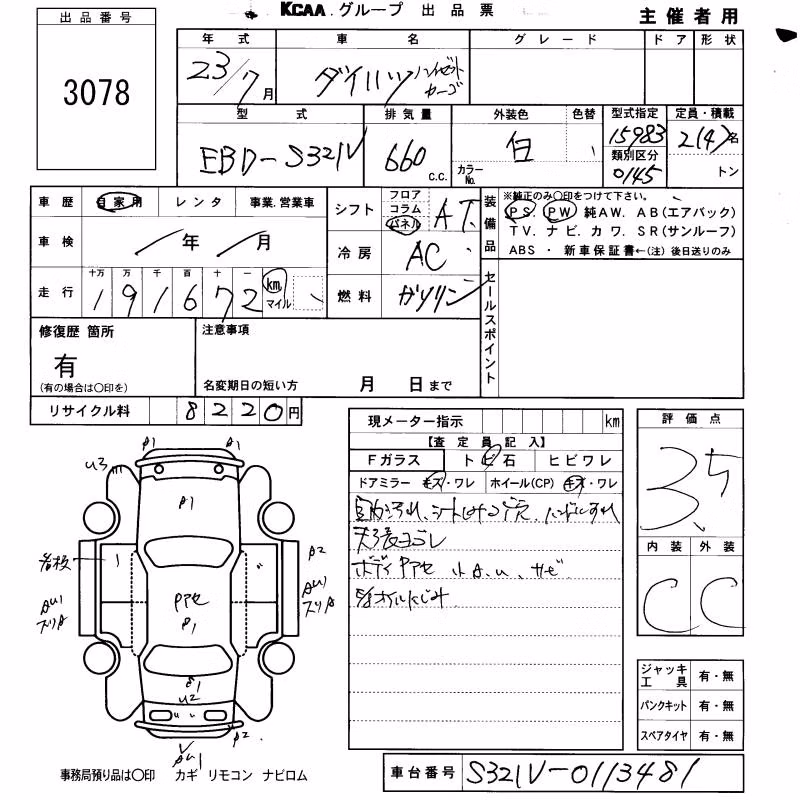 KCAA.グループ 出品票
主催者用
出品番号
3078
年式 車名 グレード ドア 形状
23/7月 ダイハツ ハイゼットカーゴ
型式 排気量 外装色 色替 型式指定 定員・積載
EBD-S321V 660 C.C. 白 カラーNo. 15983 2(4)名
類別区分
0145 トン
車歴 自家用 レンタ 事業.営業車
車検 / 年 / 月
走行 十万 万 千 百 十 一
1 9 1 6 7 2 km マイル
シフト フロア コラム パネル AT
冷房 AC
燃料 ガソリン
装備品
※純正のみ〇印をつけて下さい。
PS. PW. 純AW. AB(エアバック)
TV. ナビ. カワ. SR(サンルーフ)
ABS ・ 新車保証書←(注) 後日送りのみ
セールスポイント
修復歴 箇所
有
(有の場合は〇印を)
注意事項
名変期日の短い方 月 日まで
リサイクル料 8220円
現メーター指示 km
【査定員記入】
Fガラス トビ石 ヒビワレ
ドアミラー キズ・ワレ ホイール(CP) キズ・ワレ
ボディ Pアセ 小A.u. サビ
評価点
3.5
内装 外装
C C
ジャッキ工具 有・無
パンクキット 有・無
スペアタイヤ 有・無
A1 A1
U3
A1
看板
A2
AU1
スリA
AU1
スリA
Pアセ
A1
A1
U2
A2
AU1
事務局預り品は〇印 カギ リモコン ナビロム
車台番号 S321V-0113481